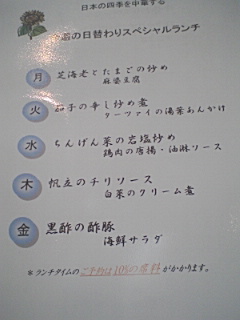 日本の四季を中華する
の日替わりスペシャルランチ
月
芝海老とたまごの炒め
麻婆豆腐
火
茄子の辛し炒め煮
ターツァイの湯葉あんかけ
水
ちんげん菜の岩塩炒め
鶏肉の唐揚・油淋ソース
木
帆立のチリソース
白菜のクリーム煮
金
黒酢の酢豚
海鮮サラダ
＊ランチタイムのご予約は10%の席料がかかります。